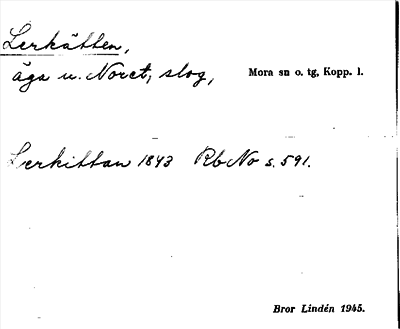 Lerkätten,
äga u. Noret, slog, Mora sn o. tg, Kopp. l.
Lerkittan 1843 Rb No s. 591.
Bror Lindén 1945.